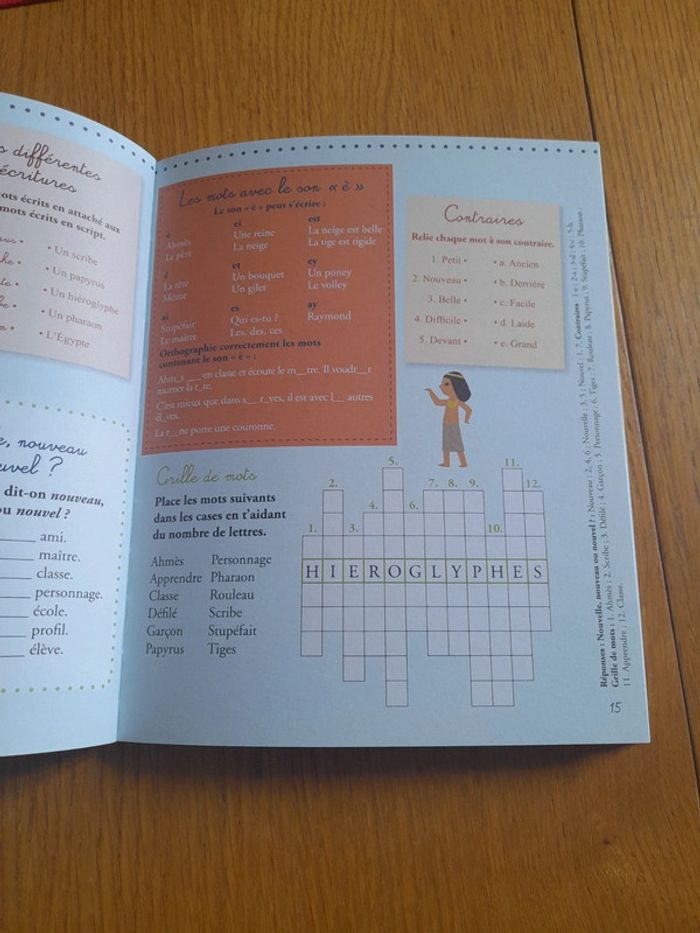 s différentes
écritures
ots écrits en attaché aux
mots écrits en script.
• Un scribe
• Un papyrus
• Un hiéroglyphe
• Un pharaon
• L'Égypte
e, nouveau
uvel ?
dit-on nouveau,
ou nouvel ?
ami.
maître.
classe.
personnage.
école.
profil.
élève.
Les mots avec le son « è »
Le son « è » peut s'écrire :
è
Ahmès
Le père
ei
Une reine
La neige
est
La neige est belle
La tige est rigide
ê
La tête
Même
et
Un bouquet
Un gilet
ey
Un poney
Le volley
ai
Stupéfait
Le maître
es
Qui es-tu ?
Les, des, ces
ay
Raymond
Orthographie correctement les mots
contenant le son « è » :
Ahm_s ___ en classe et écoute le m__tre. Il voudr__t
ramener la t_te.
C'est mieux que dans s__ r_ves, il est avec l__ autres
él_ves.
La r__ne porte une couronne.
Contraires
Relie chaque mot à son contraire.
1. Petit • • a. Ancien
2. Nouveau • • b. Derrière
3. Belle • • c. Facile
4. Difficile • • d. Laide
5. Devant • • e. Grand
Grille de mots
Place les mots suivants
dans les cases en t'aidant
du nombre de lettres.
Ahmès Personnage
Apprendre Pharaon
Classe Rouleau
Défilé Scribe
Garçon Stupéfait
Papyrus Tiges
1. 2. 3. 4. 5. 6. 7. 8. 9. 10. 11. 12.
HIEROGLYPHES
Réponses : Nouvelle, nouveau ou nouvel ? : Nouveau : 2, 4, 6 ; Nouvelle : 3, 5 ; Nouvel : 1, 7. Contraires : 1-e ; 2-a ; 3-d ; 4-c ; 5-b.
Grille de mots : 1. Ahmès ; 2. Scribe ; 3. Défilé ; 4. Garçon ; 5. Personnage ; 6. Tiges ; 7. Rouleau ; 8. Papyrus ; 9. Stupéfait ; 10. Pharaon ;
11. Apprendre ; 12. Classe.
15